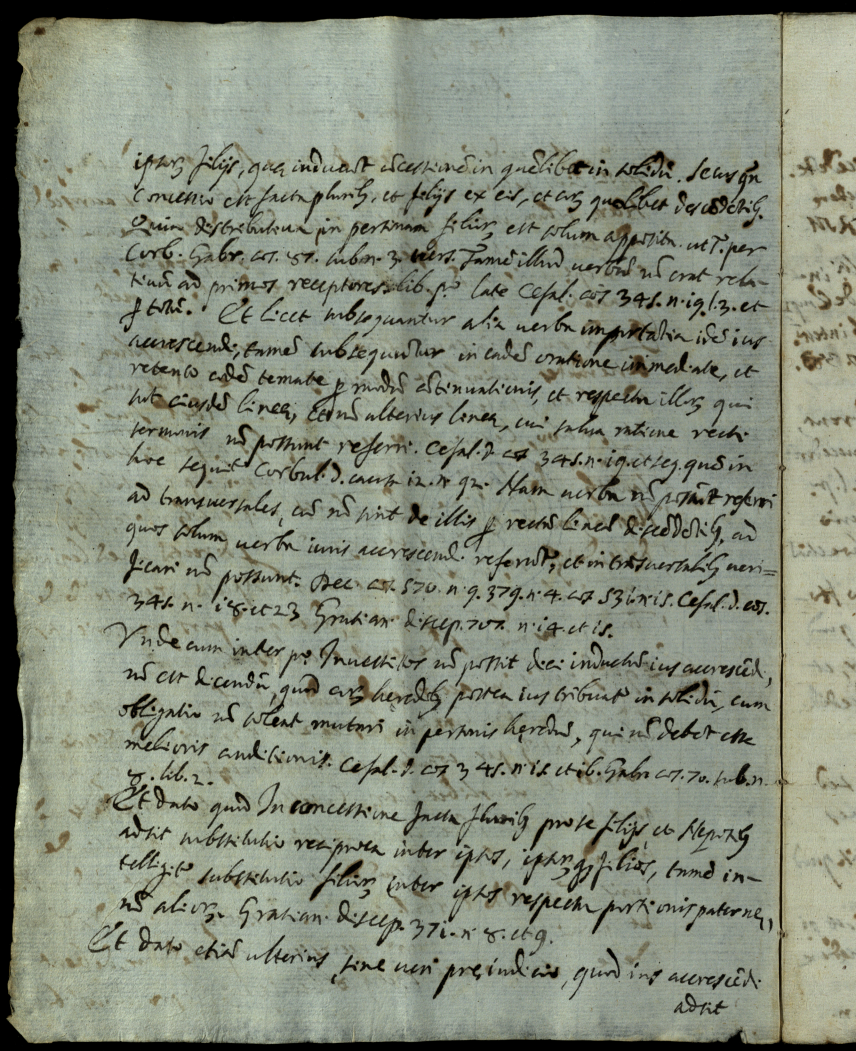 ipsorũ filijs, quæ inducũt cõcessionẽ in quẽlibet in solidũ. Secus qñ
Concessio est facta pluribʒ, et filijs ex eis, et eorũ quolibet descẽdẽtibʒ.
Quia distributiua in personam filiorũ est solum apposita. ut per
Corb. Gabr. cos. 87. sub n. 3. uers. Tamẽ illud uerbũ nõ erat rela-
tiuũ ad primos receptores lib. pº late Cefal. cos 345. n. 19. l. 3. et
ꝑ totũ. Et licet subsequantur alia uerba importãtia idẽ ius
accrescendi, tamẽ subsequũtur in eadẽ oratione immediate, et
retento eodẽ temate ꝑ modũ cõtinuationis, et respectu illorũ qui
sũt eiusdẽ lineæ, et nõ alterius lineæ, cui salua ratione recti
sermonis nõ possunt referri. Cefal. d. cos 345. n. 19. et seq. quẽ in
hoc sequit Corbul. d. causa 12. n. 92. Nam uerba nõ possũt referri
ad transuersales, cũ nõ sint de illis ꝑ rectã lineã discẽdẽtibʒ, ad
quos solum uerba iuris accrescendi referũt, et in trãsuersalibʒ ueri=
ficari nõ possunt. Dec. cos. 570. n. 9. 379. n. 4. cos 531. n. is. Cefal. d. cos.
345. n. 18. et 23 Gratian. discep. 707. n. 14. et is.
Vnde cum inter pº Inuestitos nõ possit dici inductũ ius accrescẽdi,
nõ est dicendũ, quod eorũ heredibʒ postea ius tribuat in solidũ, cum
obligatio nõ soleat mutari in personis hęredũ, qui nõ debẽt esse
melioris cõditionis. Cefal. d. cos 345. n. is. et ib. Gabr. cos. 70. sub. n.
8. lib. 2.
Et dato quod In concessione facta pluribʒ pro se filijs, et Nepotibʒ
adsit substitutio reciproca inter ipsos, ipsorũqʒ filios, tamẽ in-
telligit substitutio filiorũ inter ipsos respectu portionis paternæ,
nõ aliorũ. Gratian. discep. 371. n. 8. et 9.
Et dato etiã ulterius sine ueri pręiudicio, quod ius accrescẽdi
adsit